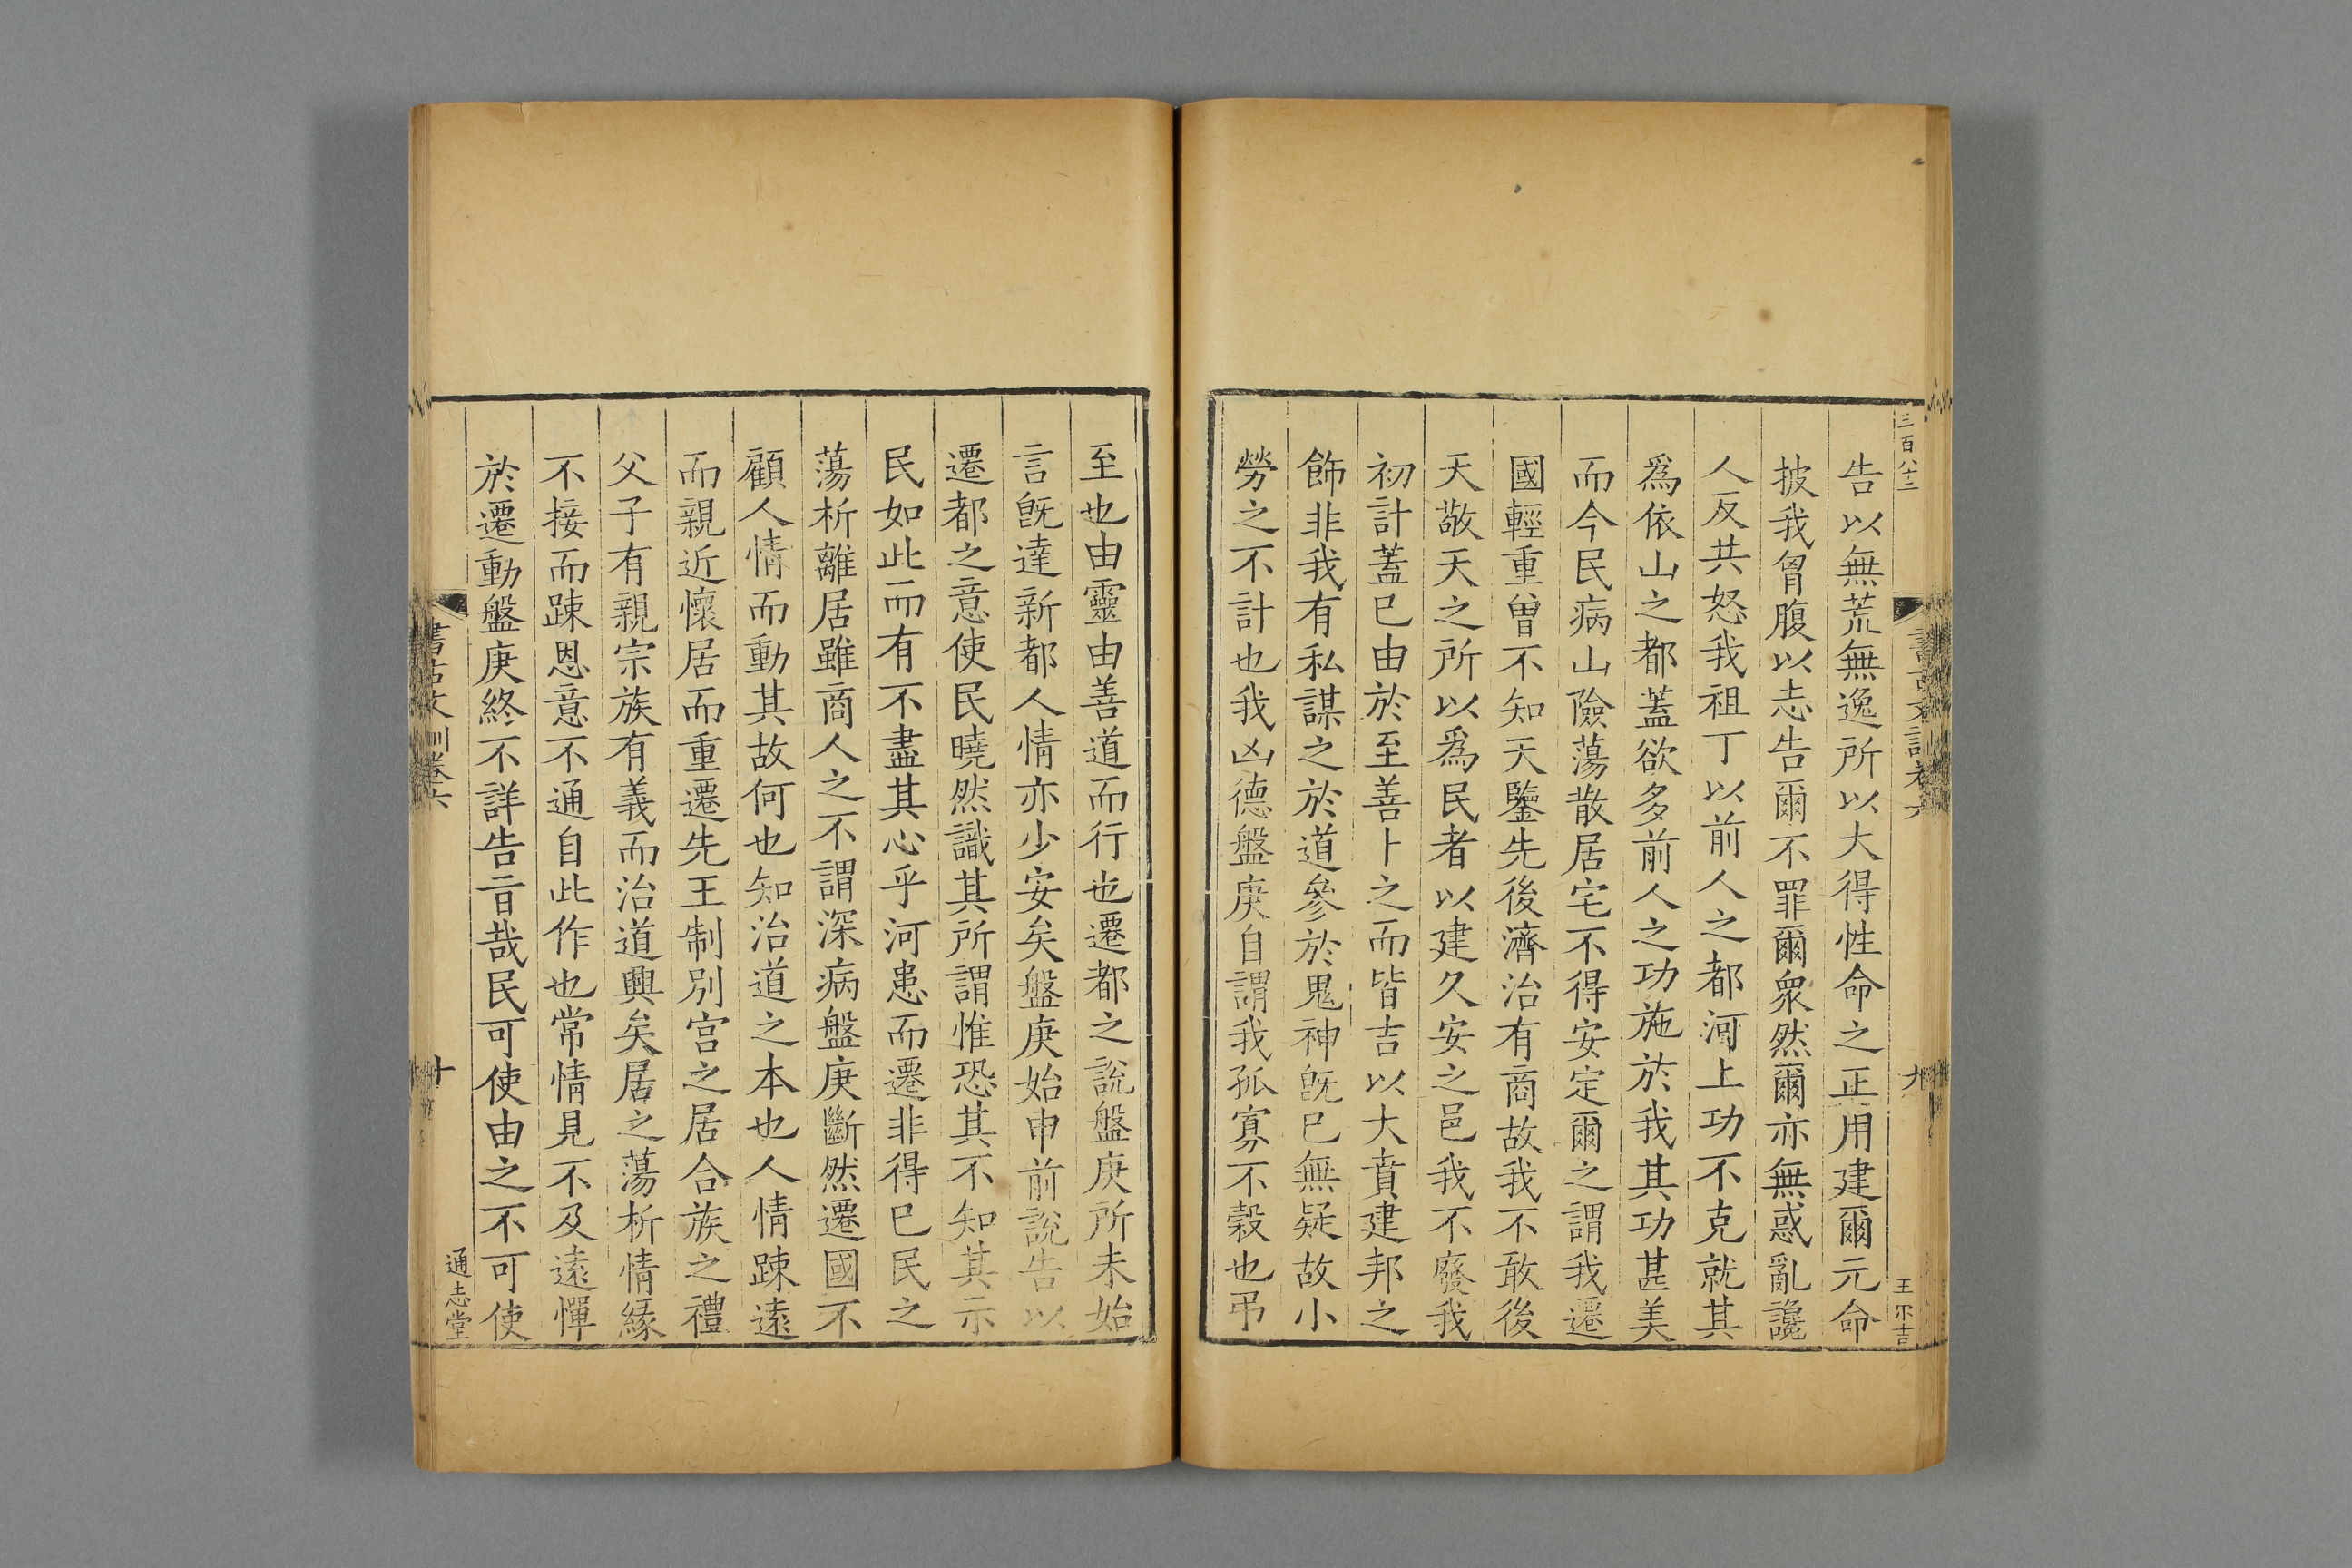 三百八十二
告以無荒無逸所以大得性命之正用建爾元命
披我胷腹以志告爾不罪爾衆然爾亦無惑亂讒
人反共怒我祖丁以前人之都河上功不克就其
爲依山之都蓋欲多前人之功施於我其功甚美
而今民病山險蕩散居宅不得安定爾之謂我遷
國輕重曾不知天鑒先後濟治有商故我不敢後
天敬天之所以爲民者以建久安之邑我不廢我
初計蓋已由於至善卜之而皆吉以大賁建邦之
飾非我有私謀之於道參於鬼神既已無疑故小
勞之不計也我凶德盤庚自謂我孤寡不穀也弔
九
至也由靈由善道而行也遷都之說盤庚所未始
言既達新都人情亦少安矣盤庚始申前說告以
遷都之意使民曉然識其所謂惟恐其不知其示
民如此而有不盡其心乎河患而遷非得已民之
蕩析離居雖商人之不謂深病盤庚斷然遷國不
顧人情而動其故何也知治道之本也人情踈遠
而親近懷居而重遷先王制別宮之居合族之禮
父子有親宗族有義而治道興矣居之蕩析情緣
不接而踈恩意不通自此作也常情見不及遠憚
於遷動盤庚終不詳告言哉民可使由之不可使
書古文訓卷六
十
通志堂